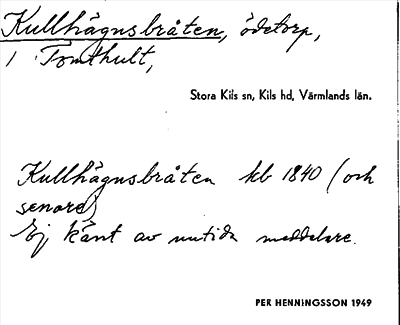 Kullhägnsbråten, ödetorp,
i Tomthult,
Stora Kils sn, Kils hd, Värmlands län.
Kullhägnsbråten hb 1840 (och
senare)
Ej känt av nutida meddelare.
PER HENNINGSSON 1949